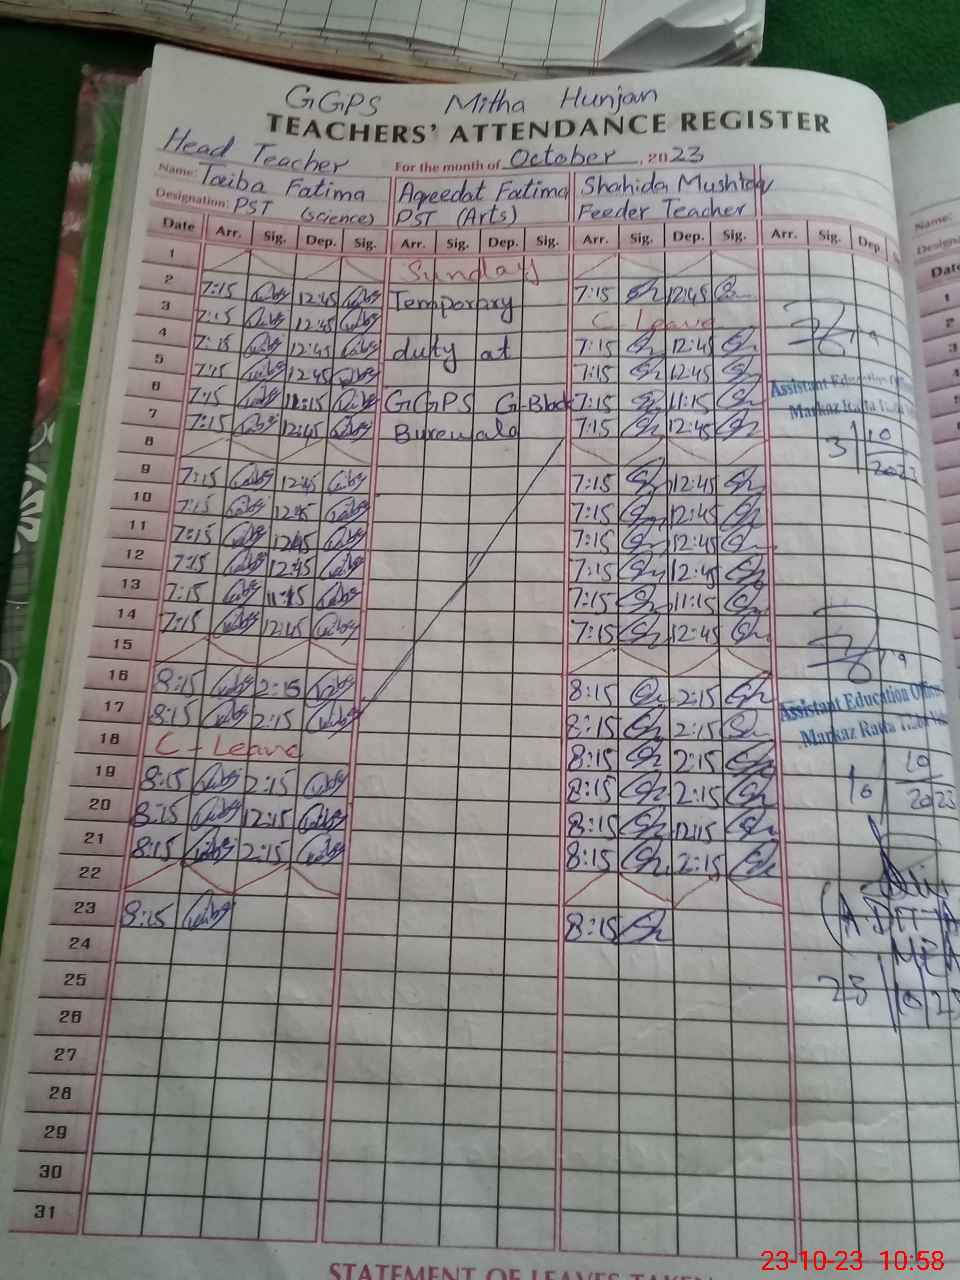 GGPS Mitha Hunjan
TEACHERS' ATTENDANCE REGISTER
Head Teacher For the month of October, 2023
Name: Taiba Fatima Aqeedat Fatima Shahida Mushtaq
Designation: PST (Science) PST (Arts) Feeder Teacher
Date Arr. Sig. Dep. Sig. Arr. Sig. Dep. Sig. Arr. Sig. Dep. Sig. Arr. Sig. Dep.
1 Sunday
2 7:15 12:45 Temporary 7:15 12:45
3 7:15 12:45 C - Leave
4 7:15 12:45 duty at 7:15 12:45
5 7:15 12:45 7:15 12:45
6 7:15 11:15 GGPS G-Block 7:15 11:15
7 7:15 12:45 Burewala 7:15 12:45
8
9 7:15 12:45 7:15 12:45
10 7:15 12:45 7:15 12:45
11 7:15 12:45 7:15 12:45
12 7:15 12:45 7:15 12:45
13 7:15 11:15 7:15 11:15
14 7:15 12:45 7:15 12:45
15
16 8:15 2:15 8:15 2:15
17 8:15 2:15 8:15 2:15
18 C - Leave 8:15 2:15
19 8:15 2:15 8:15 2:15
20 8:15 12:15 8:15 12:15
21 8:15 2:15 8:15 2:15
22
23 8:15 8:15
24
25
26
27
28
29
30
31
Assistant Education
Markaz Ratta
3 10 2023
Assistant Education Officer
Markaz Ratta
16 10 2023
23 10 23
STATEMENT OF LEAVES TAKEN
Name:
Date
1
2
3
23-10-23 10:58